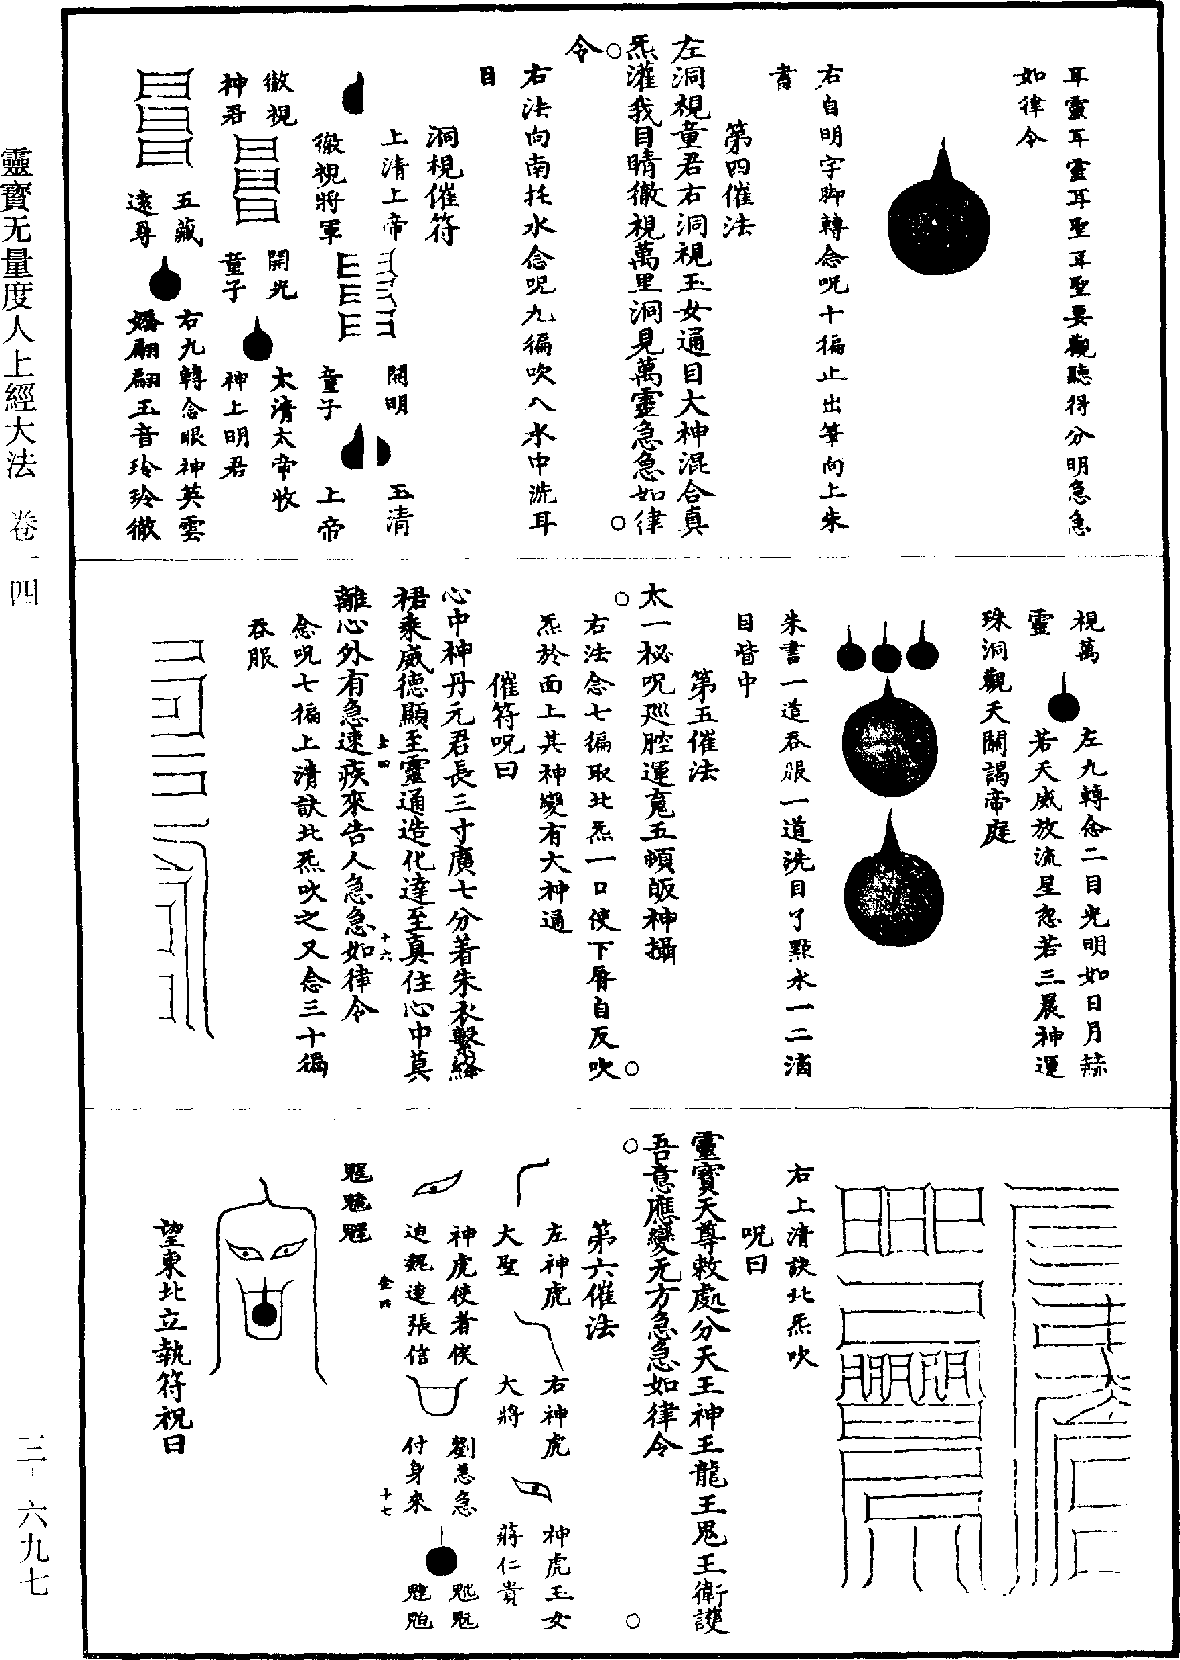 耳靈耳靈耳聖耳聖要觀聽得分明急急
如律令
右自明字脚轉念呪十徧止出筆向上朱
書
第四催法
左洞視童君右洞視玉女通目大神混合真
炁灌我目睛徹視萬里洞見萬靈急急如律
令
右法向南托水念呪九徧吹入水中洗耳
目
洞視催符
上清上帝
開明
玉清
徹視將軍
童子
上帝
徹視
神君
開光
童子
太清太帝收
神上明君
五藏
遠尋
右九轉念眼神英雲
翩翩玉音玲玲徹
視萬
靈
左九轉念二目光明如日月赫
若天威放流星忽若三晨神運
珠洞觀天關謁帝庭
朱書一道吞服一道洗目了點水一二滴
目眥中
第五催法
太一祕呪巡腔運寬五頓皈神攝
右法念七徧取北炁一口使下脣自反吹
炁於面上其神變有大神通
催符呪曰
心中神丹元君長三寸廣七分著朱衣繫絳
裙乘威德顯至靈通造化達至真住心中莫
離心外有急速疾來告人急急如律令
念呪七徧上清訣北炁吹之又念三十徧
吞服
右上清訣北炁吹
呪曰
靈寶天尊敕處分天王神王龍王鬼王衛護
吾意應變无方急急如律令
第六催法
左神虎
大聖
右神虎
大將
神虎玉女
蔣仁貴
神虎使者侯
迪魏連張信
劉惹急
付身來
望東北立執符祝曰
靈寶无量度人上經大法 卷一四
三-六九七